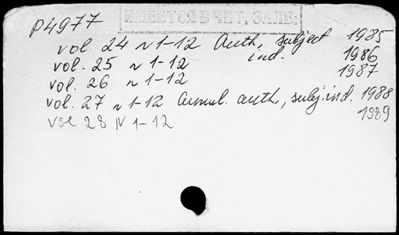 P4977
vol. 24 N 1-12 Auth., subject ind. 1985
vol. 25 N 1-12 1986
vol. 26 N 1-12 1987
vol. 27 N 1-12 Cumul. auth., subj. ind. 1988
vol 28 N 1-12 1989